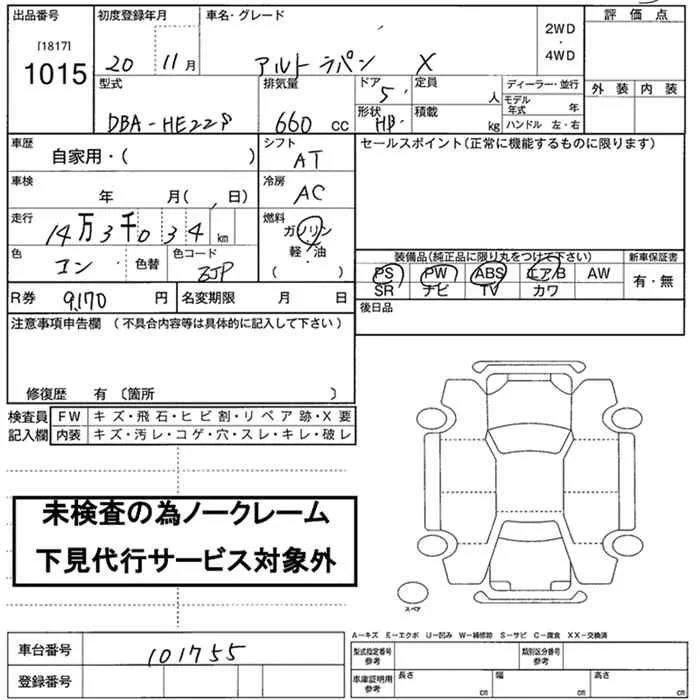 出品番号 初度登録年月 車名・グレード 評価点
[1817]
1015
20 11月 アルトラパン X 2WD・4WD
外装 内装
型式 排気量 ドア 定員 ディーラー・並行
DBA-HE22S 660 cc 5 人 モデル年式 年
形状 積載
HB kg ハンドル 左・右
車歴 自家用・( ) シフト AT セールスポイント(正常に機能するものに限ります)
車検 年 月( 日) 冷房 AC
走行 14万3千034 km 燃料 ガソリン
軽・油
( )
色 コン 色替 色コード ZJP
装備品(純正品に限り丸をつけて下さい) 新車保証書
PS PW ABS エアB AW 有・無
SR ナビ TV カワ
R券 9,170 円 名変期限 月 日 後日品
注意事項申告欄 (不具合内容等は具体的に記入して下さい)
修復歴 有 〔箇所 〕
検査員 FW キズ・飛石・ヒビ割・リペア跡・X要
記入欄 内装 キズ・汚レ・コゲ・穴・スレ・キレ・破レ
未検査の為ノークレーム
下見代行サービス対象外
スペア
A-キズ E-エクボ U-凹み W-補修跡 S-サビ C-腐食 XX-交換済
車台番号 101755 型式指定番号 参考 類別区分番号 参考
登録番号 車庫証明用 参考 長さ cm 幅 cm 高さ cm